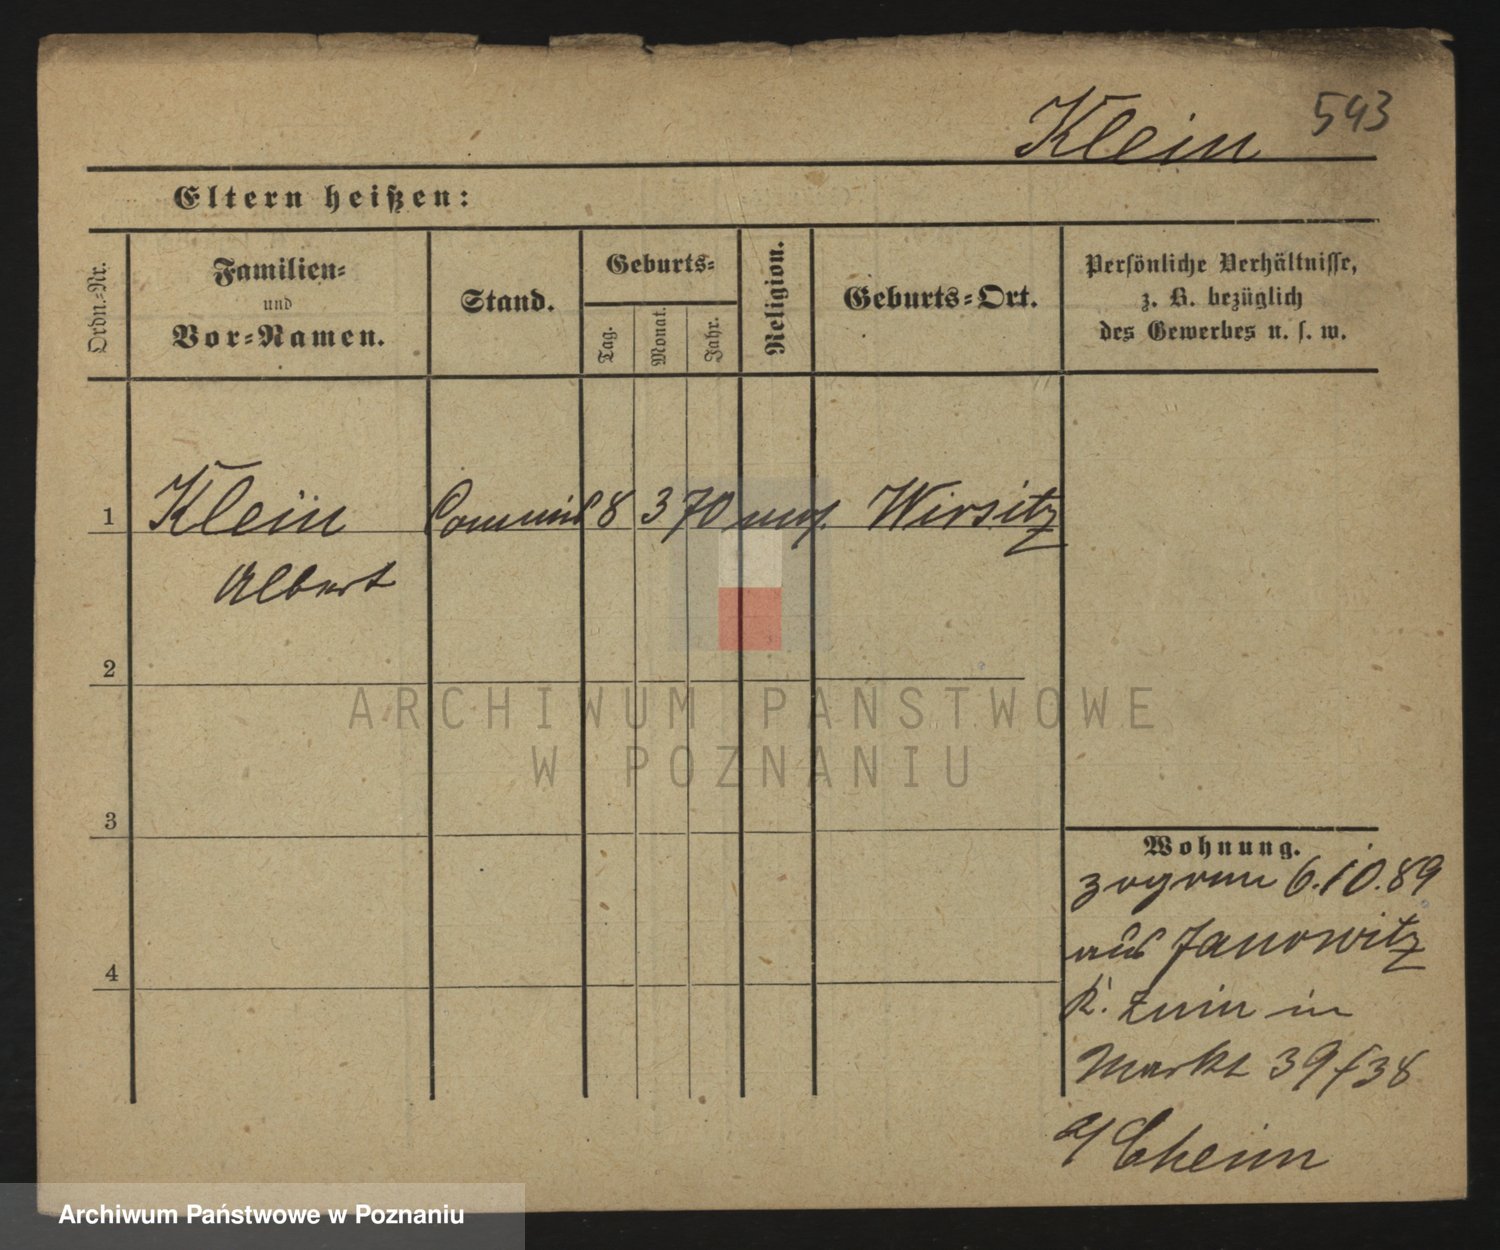 Klein 543
Eltern heißen:
Ordn.-Nr.
Familien-
und
Vor-Namen.
Stand.
Geburts-
Tag.
Monat.
Jahr.
Religion.
Geburts-Ort.
Persönliche Verhältnisse,
z. B. bezüglich
des Gewerbes u. s. w.
1 Klein Commis 8 3 70 mos. Wirsitz
Albert
2
3
4
Wohnung.
zog am 6.10.89
aus Janowitz
K. Znin in
Markt 39/38
a/ Cheim
ARCHIWUM PAŃSTWOWE
W POZNANIU
Archiwum Państwowe w Poznaniu